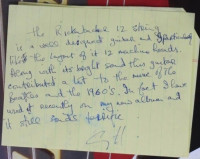 the Rickenbacker 12 string
is a well designed guitar and I particularly
like the layout of it 12 machine heads.
Along with its bright sound this guitar
contributed a lot to the music of the
Beatles and the 1960's. In fact I have
used it recently on my new album and
it still sounds fabulous